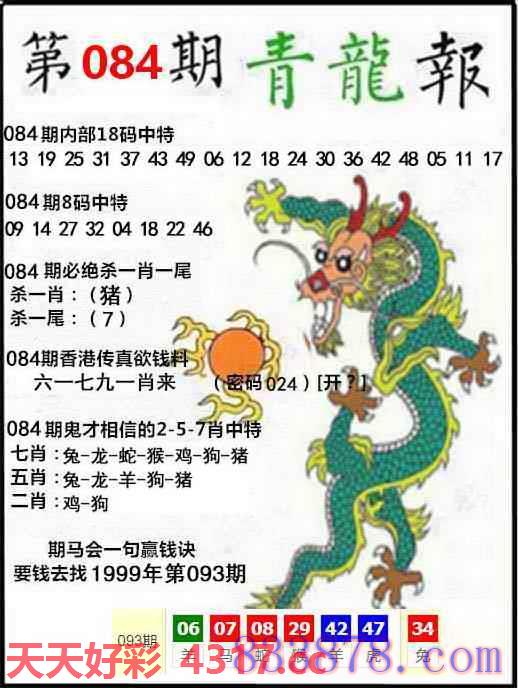 第084期 青龍報
084期内部18码中特
13 19 25 31 37 43 49 06 12 18 24 30 36 42 48 05 11 17
084期8码中特
09 14 27 32 04 18 22 46
084期必绝杀一肖一尾
杀一肖：（猪）
杀一尾：（7）
084期香港传真欲钱料
六一七九一肖来 （密码024）[开？]
084期鬼才相信的2-5-7肖中特
七肖：兔-龙-蛇-猴-鸡-狗-猪
五肖：兔-龙-羊-狗-猪
二肖：鸡-狗
期马会一句赢钱诀
要钱去找1999年第093期
093期 06 07 08 29 42 47 34
羊 马 蛇 猴 羊 虎 兔
天天好彩 4317.cc